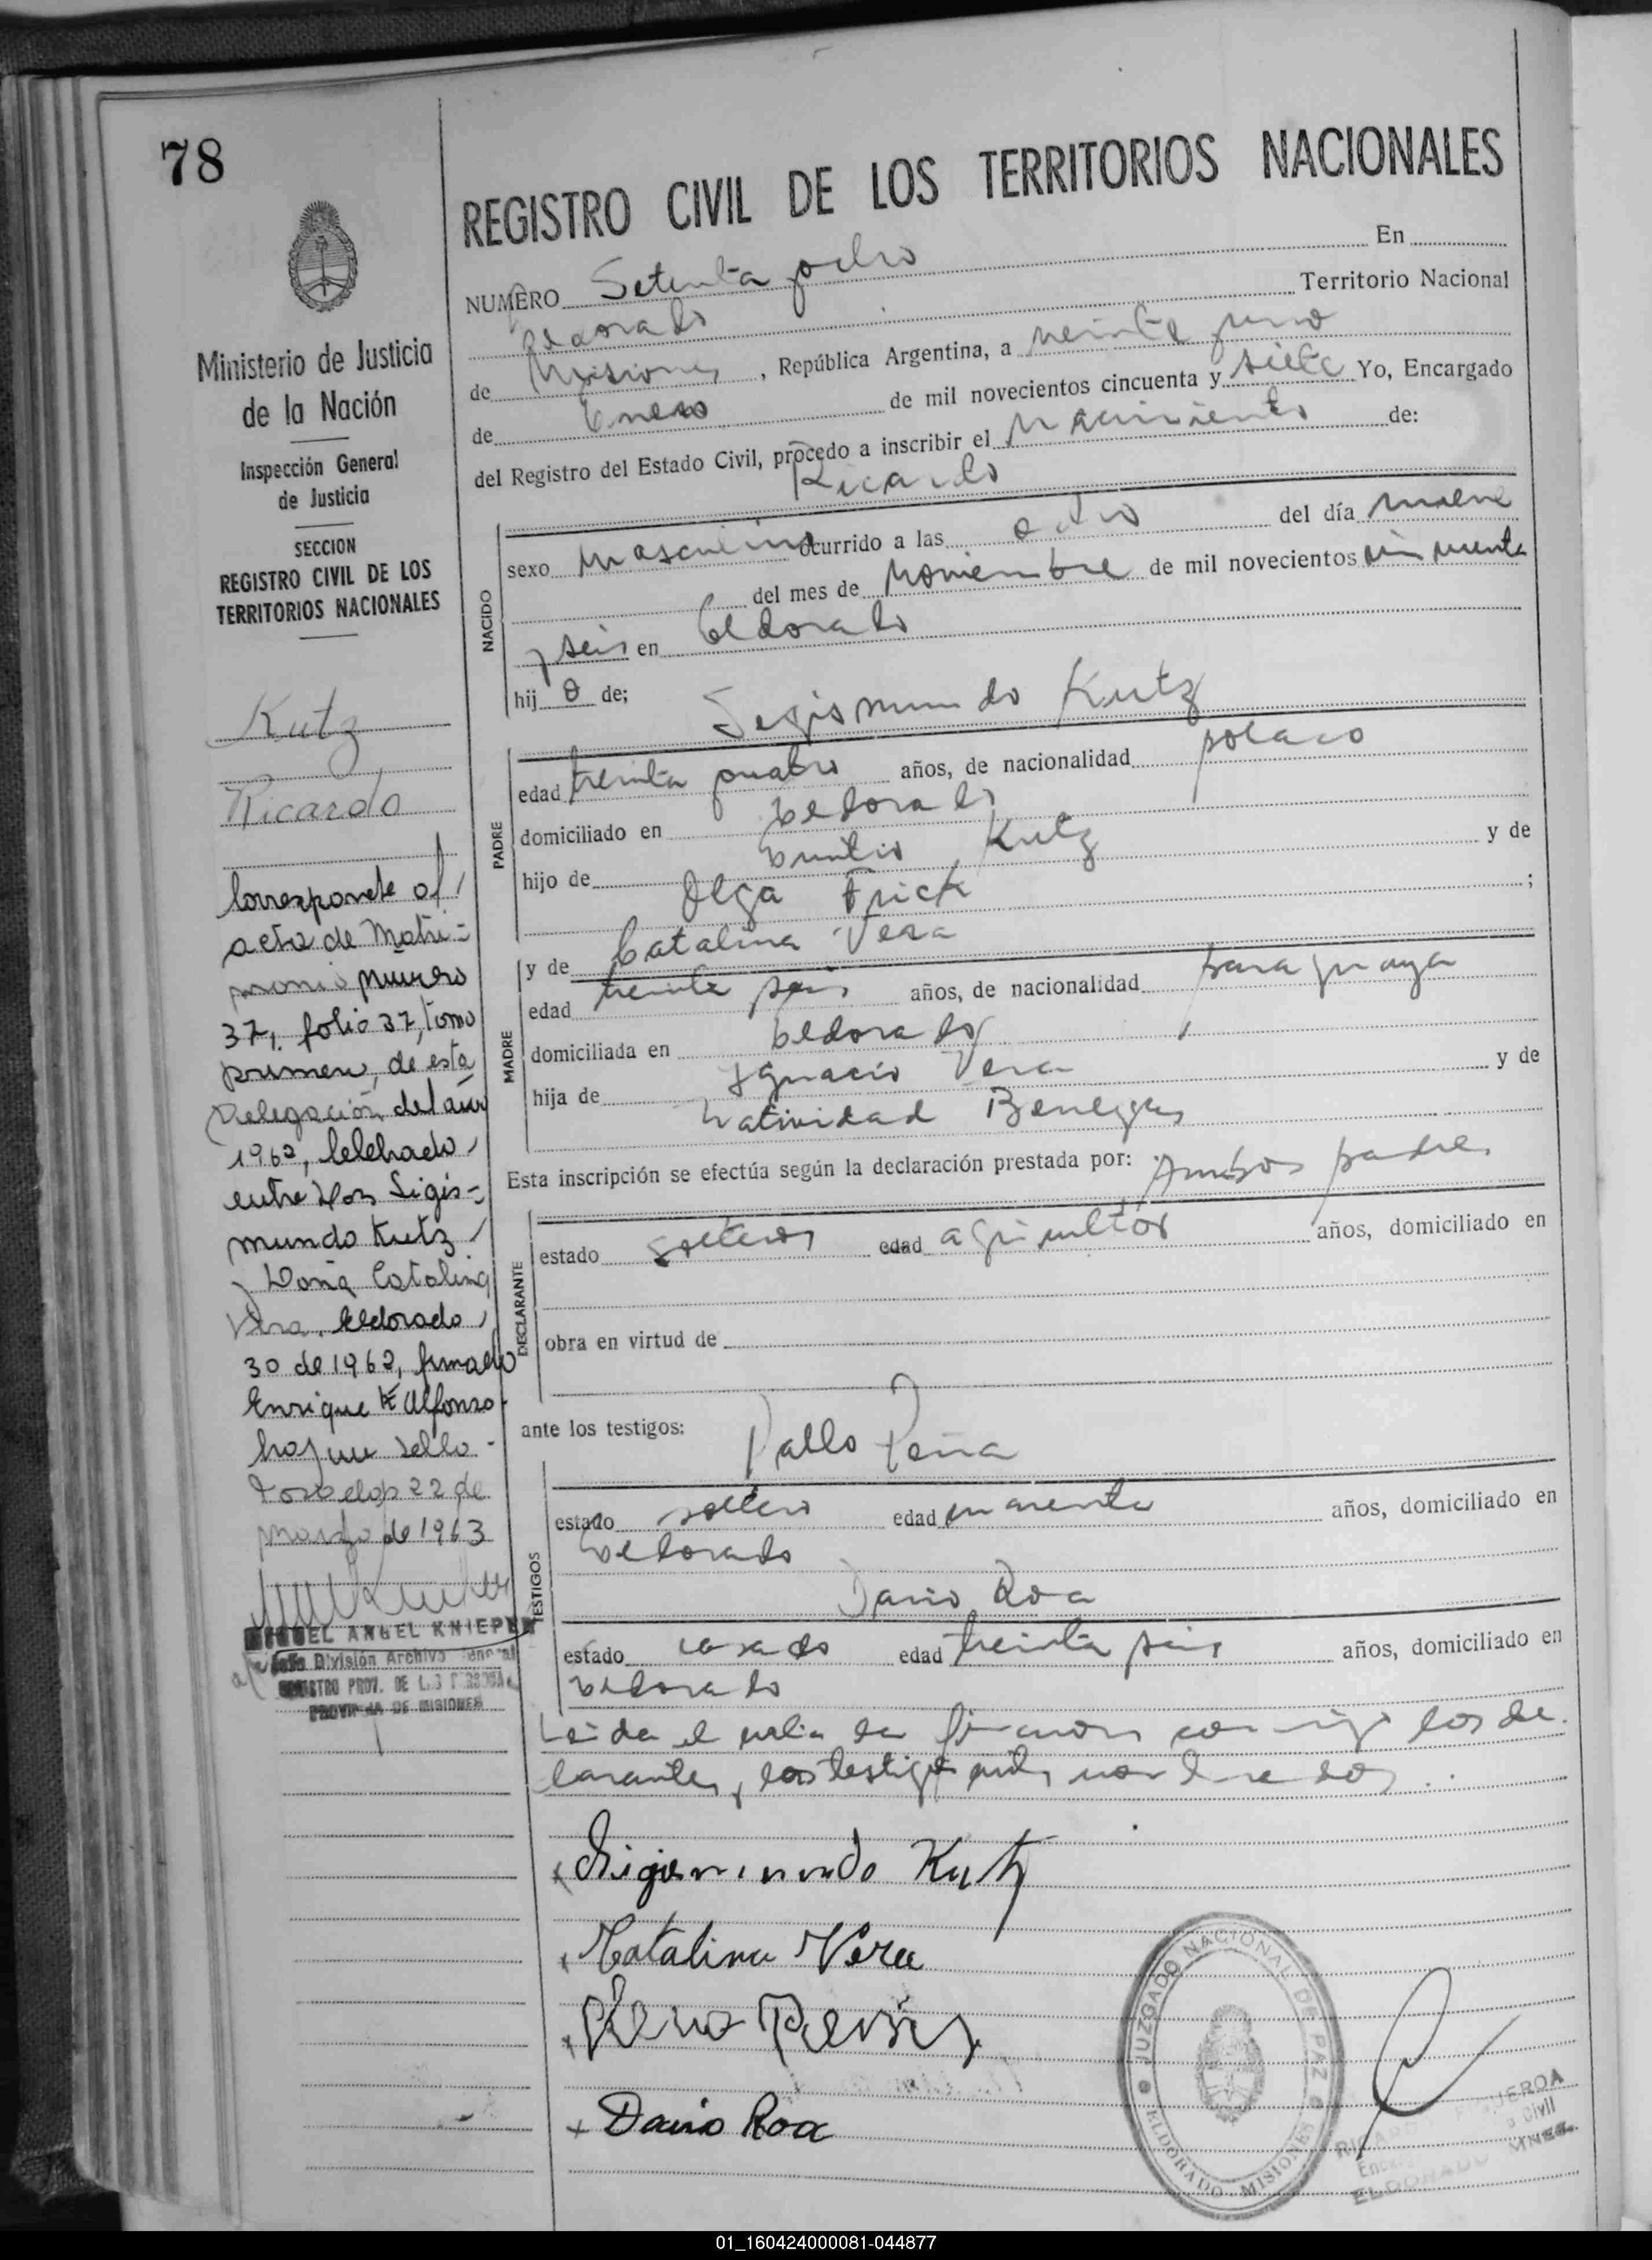 78
REGISTRO CIVIL DE LOS TERRITORIOS NACIONALES
NUMERO Setenta y ocho En
Eldorado Territorio Nacional
de Misiones, República Argentina, a veinte y uno
de Enero de mil novecientos cincuenta y siete Yo, Encargado
del Registro del Estado Civil, procedo a inscribir el Nacimiento de:
Ricardo
NACIDO
sexo masculino ocurrido a las ocho del día nueve
del mes de Noviembre de mil novecientos cincuenta
y seis en Eldorado
hijo de; Segismundo Kutz
PADRE
edad treinta y cuatro años, de nacionalidad polaco
domiciliado en Eldorado
hijo de Emilio Kutz y de
Olga Frick ;
y de Catalina Vera
MADRE
edad treinta y seis años, de nacionalidad paraguaya
domiciliada en Eldorado
hija de Ignacio Vera y de
Natividad Benegas
Esta inscripción se efectúa según la declaración prestada por: Ambos padres
DECLARANTE
estado solteros edad agricultor años, domiciliado en
obra en virtud de
ante los testigos: Pablo Peña
TESTIGOS
estado soltero edad cuarenta años, domiciliado en
Eldorado
Dario Roa
estado casado edad treinta y seis años, domiciliado en
Eldorado
Leida el acta la firman conmigo los de
larantes y los testigos antes nombrados
x Sigismundo Kutz
x Catalina Vera
x
x Dario Roa
JUZGADO NACIONAL DE PAZ
ELDORADO - MISIONES
ELDORADO MNES.
Ministerio de Justicia
de la Nación
Inspección General
de Justicia
SECCION
REGISTRO CIVIL DE LOS
TERRITORIOS NACIONALES
Kutz
Ricardo
Corresponde al
acta de Matri=
monio número
37, folio 37, tomo
primero, de esta
Delegación del año
1962, celebrado
entre Don Sigis=
mundo Kutz
y Doña Catalina
Vera. Eldorado
30 de 1962, firmado
Enrique K Alfonso
hay un sello -
Posadas 22 de
marzo de 1963
MIGUEL ANGEL KNIEPER
Jefe División Archivo General
REGISTRO PROV. DE LAS PERSONAS
PROVINCIA DE MISIONES
01_160424000081-044877